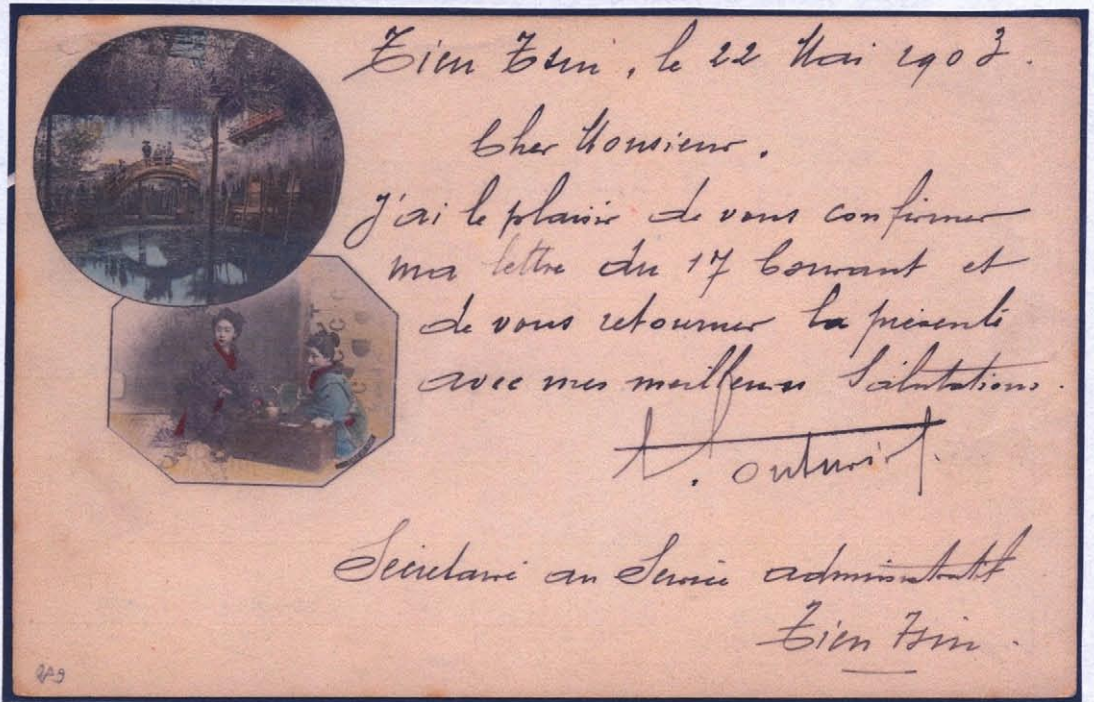 Tien Tsin, le 22 Mai 1903.
Cher Monsieur.
J'ai le plaisir de vous confirmer
ma lettre du 17 Courant et
de vous retourner la présente
avec mes meilleures Salutations.
Secrétaire au Service administratif
Tien Tsin.